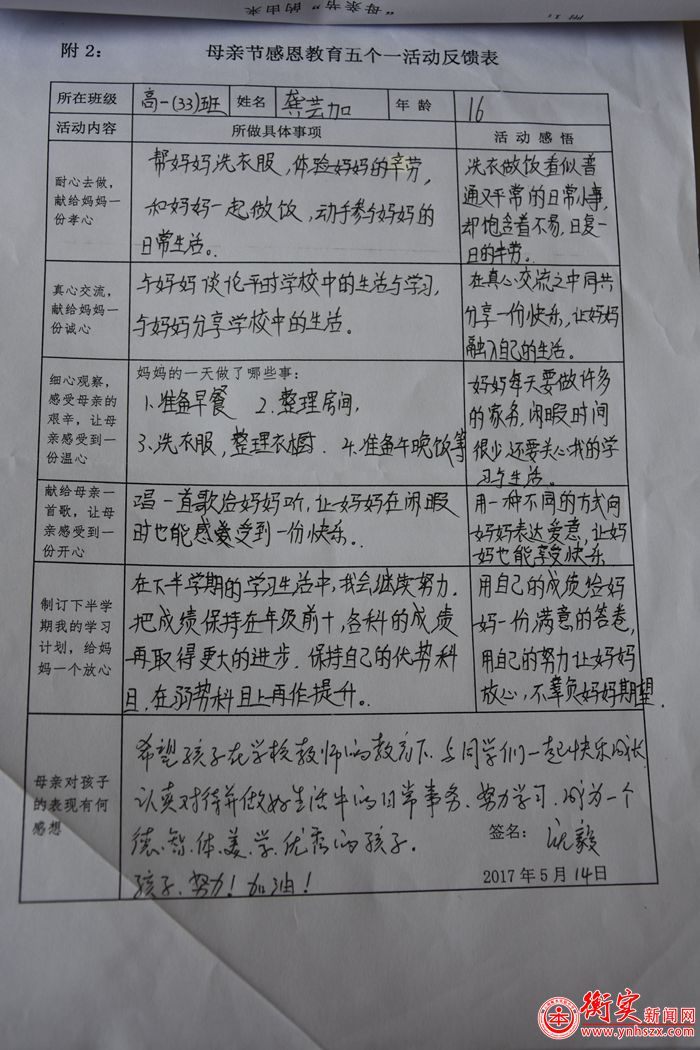 附1:
“母亲节”的由来
附2:
母亲节感恩教育五个一活动反馈表
所在班级 高一(33)班 姓名 龚芸加 年龄 16
活动内容 所做具体事项 活动感悟
耐心去做,
献给妈妈一
份孝心
帮妈妈洗衣服,体验妈妈的辛劳,
和妈妈一起做饭,动手参与妈妈的
日常生活。
洗衣做饭看似普
通又平常的日常小事,
却饱含着不易,日复一
日的辛劳。
真心交流,
献给妈妈一
份诚心
与妈妈谈论平时学校中的生活与学习,
与妈妈分享学校中的生活。
在真心交流之中同共
分享一份快乐,让妈妈
融入自己的生活。
细心观察,
感受母亲的
艰辛,让母
亲感受到一
份温心
妈妈的一天做了哪些事:
1.准备早餐 2.整理房间,
3.洗衣服,整理衣橱. 4.准备午晚饭等
妈妈每天要做许多
的家务,闲暇时间
很少,还要关心我的学
习与生活。
献给母亲一
首歌,让母
亲感受到一
份开心
唱一首歌给妈妈听,让妈妈在闲暇
时也能感受到一份快乐。
用一种不同的方式向
妈妈表达爱意,让妈
妈也能享受快乐
制订下半学
期我的学习
计划,给妈
妈一个放心
在下半学期的学习生活中,我会继续努力.
把成绩保持在年级前十,各科的成绩
再取得更大的进步.保持自己的优势科
目,在弱势科目上再作提升。
用自己的成绩给妈
妈一份满意的答卷,
用自己的努力让妈妈
放心,不辜负妈妈期望.
母亲对孩子
的表现有何
感想
希望孩子在学校教师的教育下.与同学们一起快乐成长.
认真对待并做好生活中的日常事务.努力学习.成为一个
德.智.体.美.学.优秀的孩子.
孩子.努力!加油!
签名: 毅
2017年5月14日
衡实新闻网
www.ynhszx.com